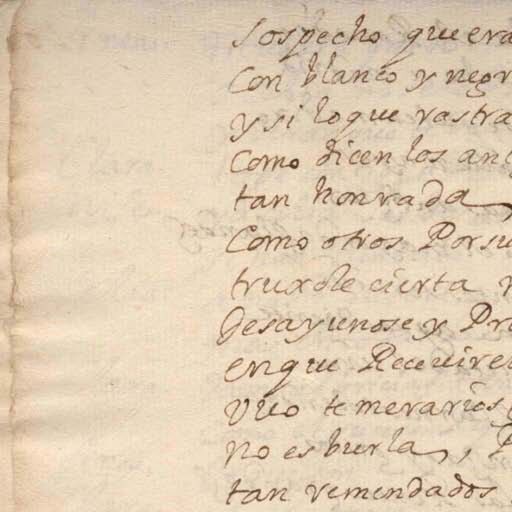 sospecho que era
Con blanco y negr
y si lo que rastra
Como dicen los ant
tan honrada,
Como otros Por su
truxole cierta
Desayunose y Pr
en que Receuire
Vuo temerarios
no es burla,
tan remendados